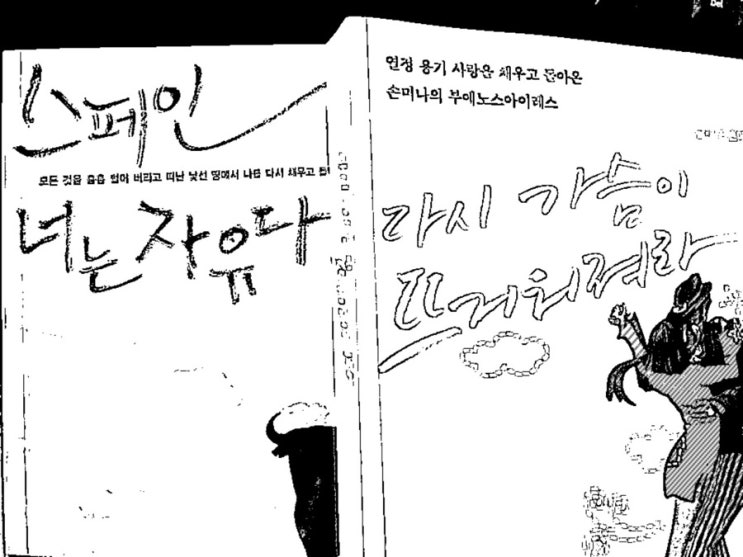 스페인
모든 것을 훌훌 털어 버리고 떠난 낯선 땅에서 나를 다시 채우고
너는 자유다
열정 용기 사랑을 채우고 돌아온
손미나의 부에노스아이레스
다시 가슴이
뜨거워져라